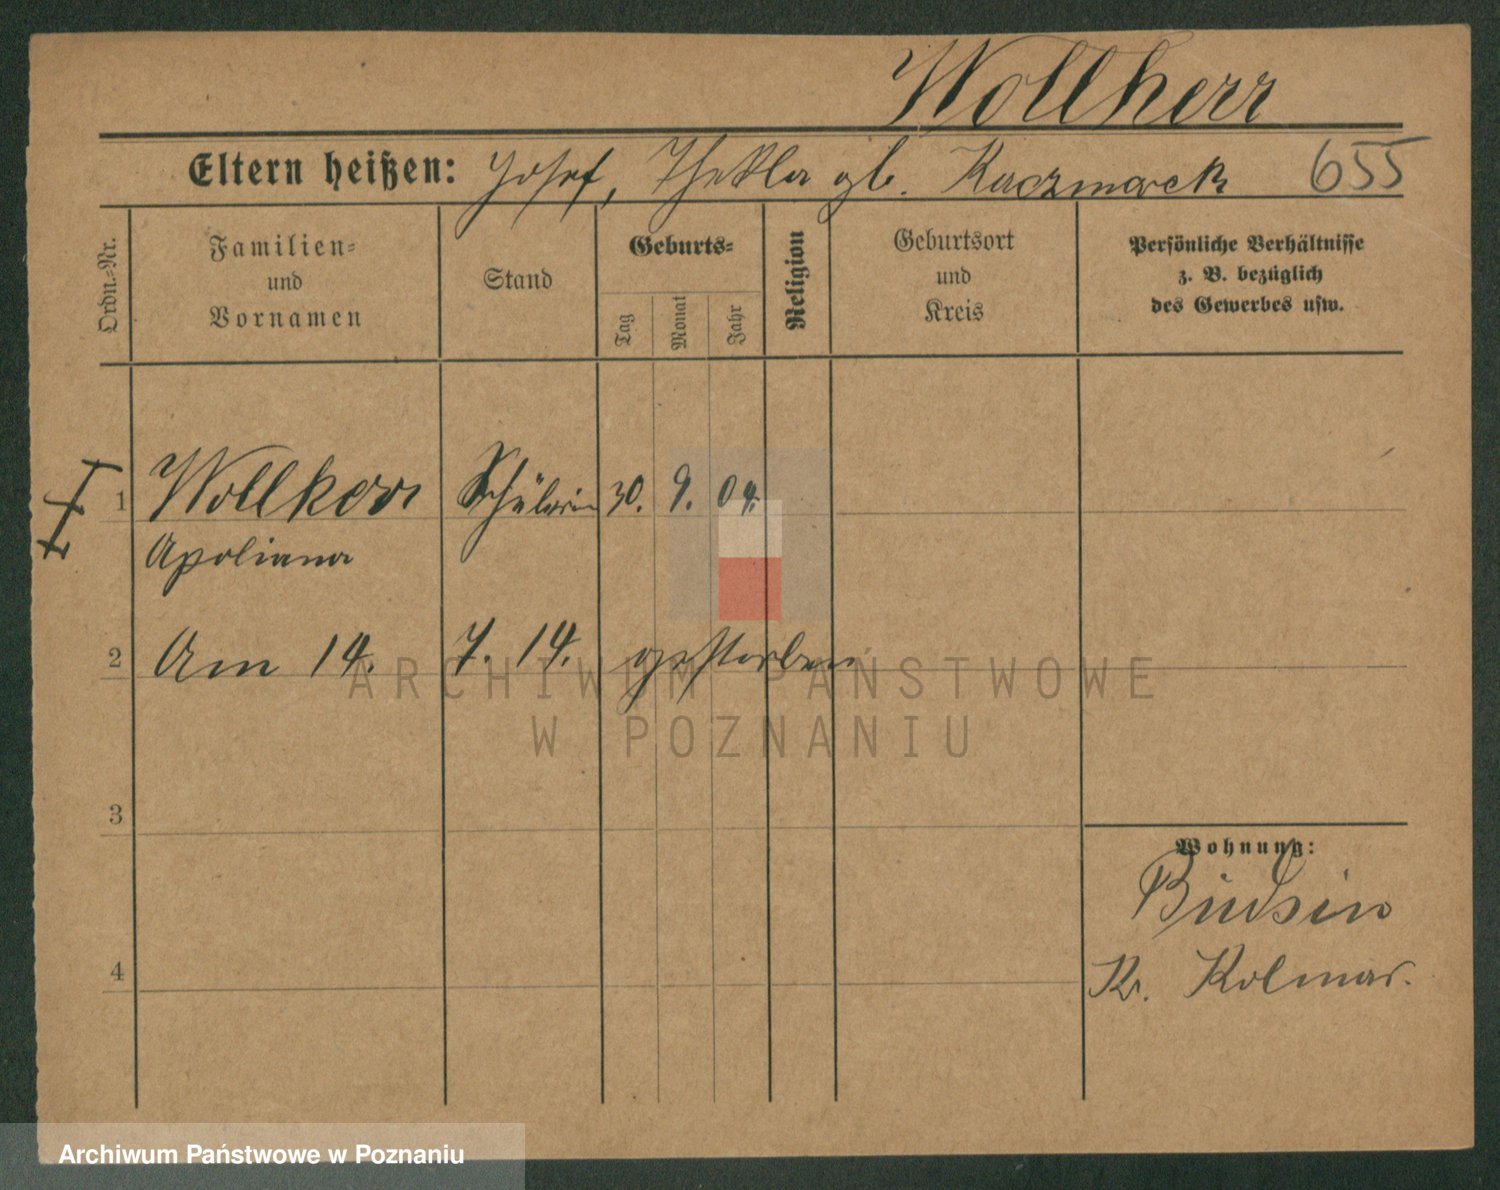 Wollherr
Eltern heißen: Josef, Thekla gb. Kaczmarek 655
Ordn.-Nr.
Familien=
und
Vornamen
Stand
Geburts=
Tag
Monat
Jahr
Religion
Geburtsort
und
Kreis
Persönliche Verhältnisse
z. B. bezüglich
des Gewerbes usw.
1 Wollherr Schülerin 30. 9. 04.
Apoliana
2 Am 14. 7. 14. gestorben
ARCHIWUM PAŃSTWOWE
W POZNANIU
3
Wohnung:
Budsin
4 Kr. Kolmar.
Archiwum Państwowe w Poznaniu